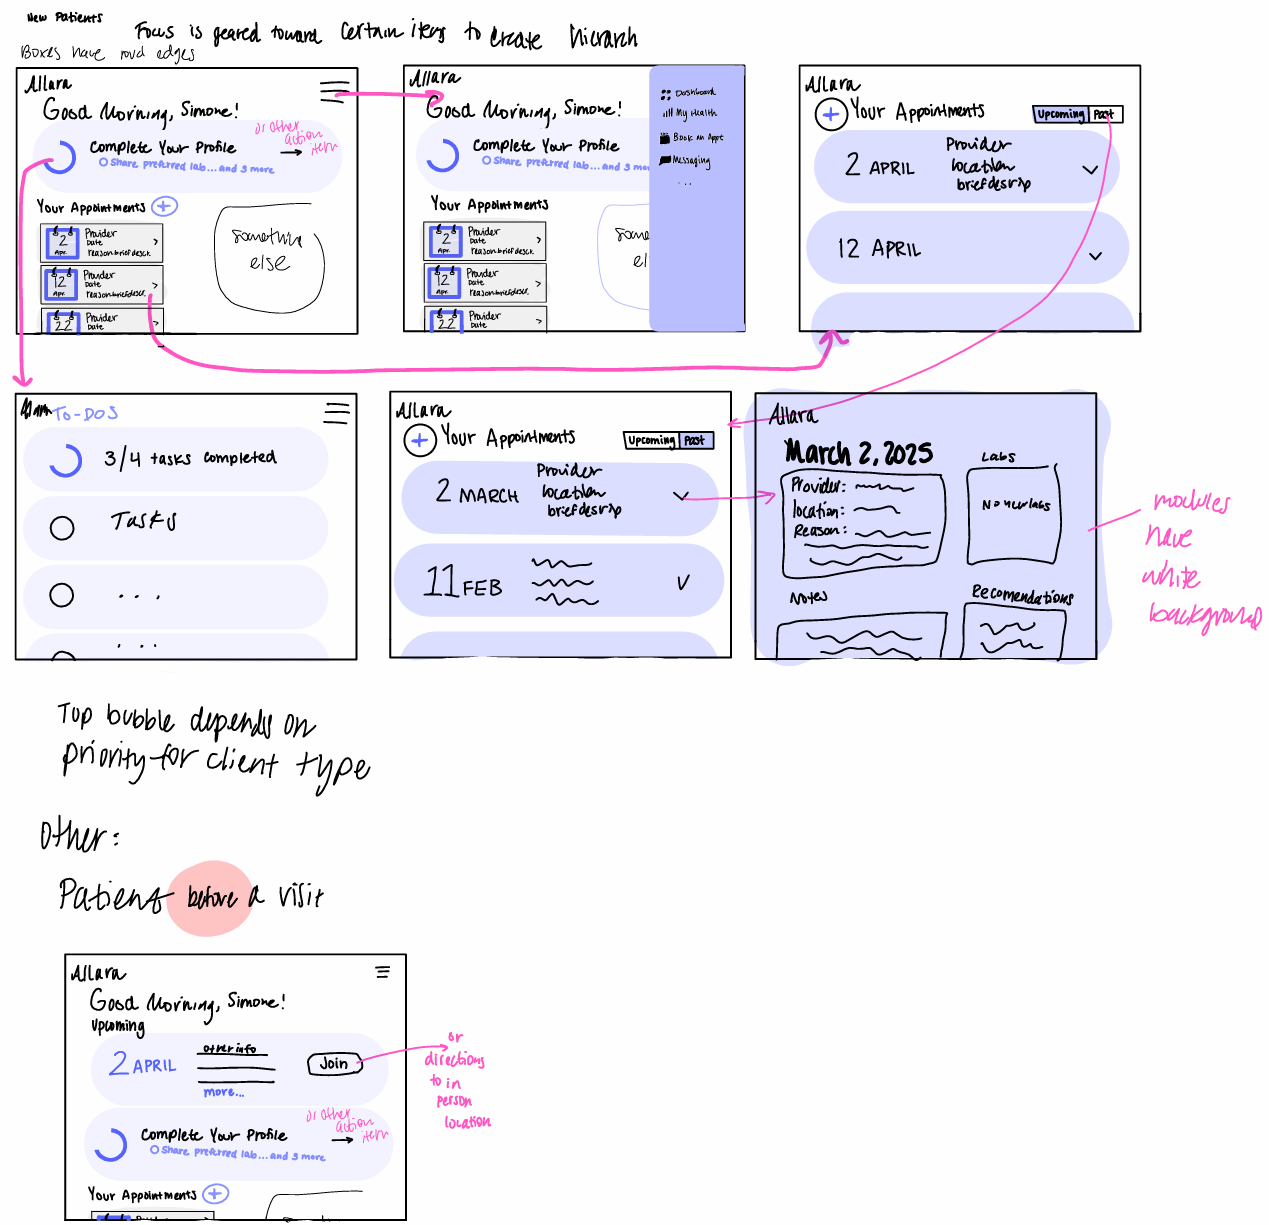 New Patients
Focus is geared toward certain items to create hierarch
Boxes have roud edges
Allara
Good Morning, Simone!
or other
action
item
Complete Your Profile
Share preferred lab...and 3 more
Your Appointments +
2
Apr.
Provider
Date
reason·brief descr.
12
Apr.
Provider
Date
reason·brief descr.
22
Provider
Date
something
else
Allara
Good Morning, Simone!
Complete Your Profile
Share preferred lab...and 3 m
Your Appointments
2
Apr.
Provider
Date
reason·brief descr.
12
Apr.
Provider
Date
reason·brief descr.
22
Provider
Date
som
el
Dashboard
My Health
Book an Appt
Messaging
...
Allara
+ Your Appointments
Upcoming Past
2 APRIL
Provider
location
brief descrip
12 APRIL
Allara
TO-DOS
3/4 tasks completed
Tasks
...
...
Allara
+ Your Appointments
Upcoming Past
2 MARCH
Provider
location
brief descrip
11 FEB
Allara
March 2, 2025
Provider:
location:
Reason:
Labs
No new labs
Notes
Recomendations
modules
have
white
background
Top bubble depends on
priority for client type
Other:
Patient before a visit
Allara
Good Morning, Simone!
Upcoming
2 APRIL
other info
more...
Join
or
directions
to in
person
location
or other
action
item
Complete Your Profile
Share preferred lab...and 3 more
Your Appointments +